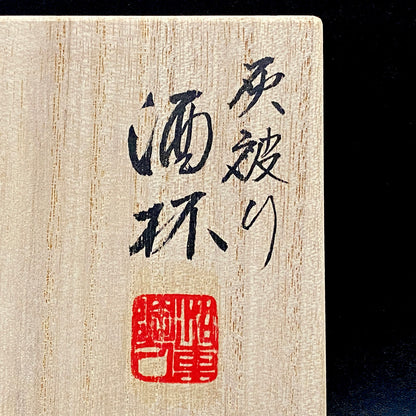 灰被り
酒杯